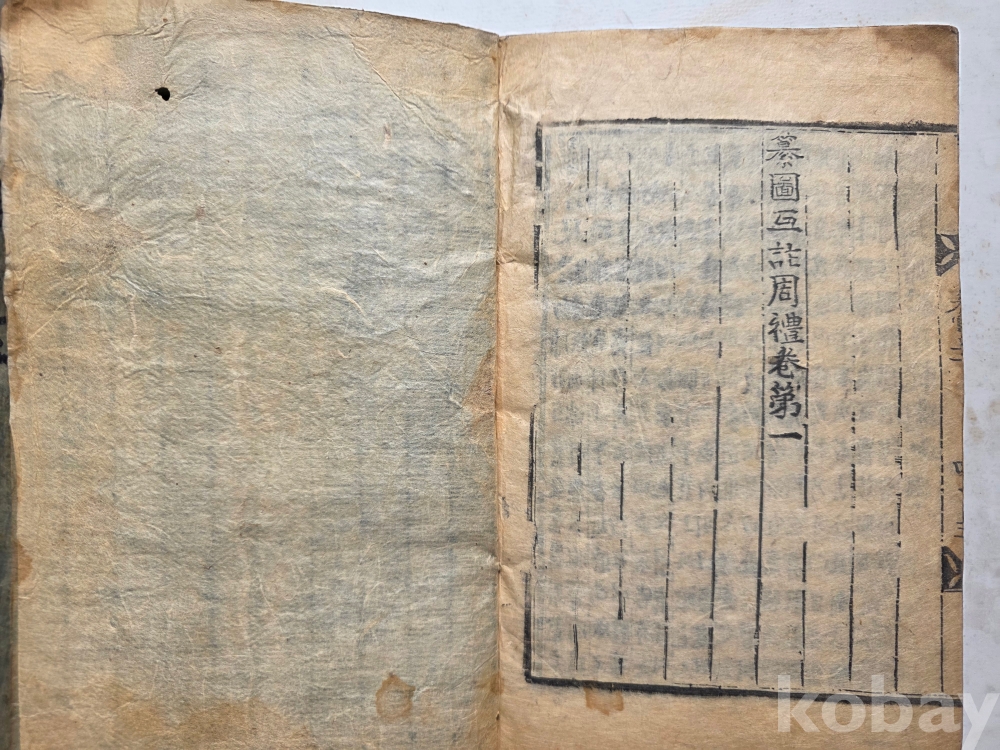 纂圖互註周禮卷第一
kobay